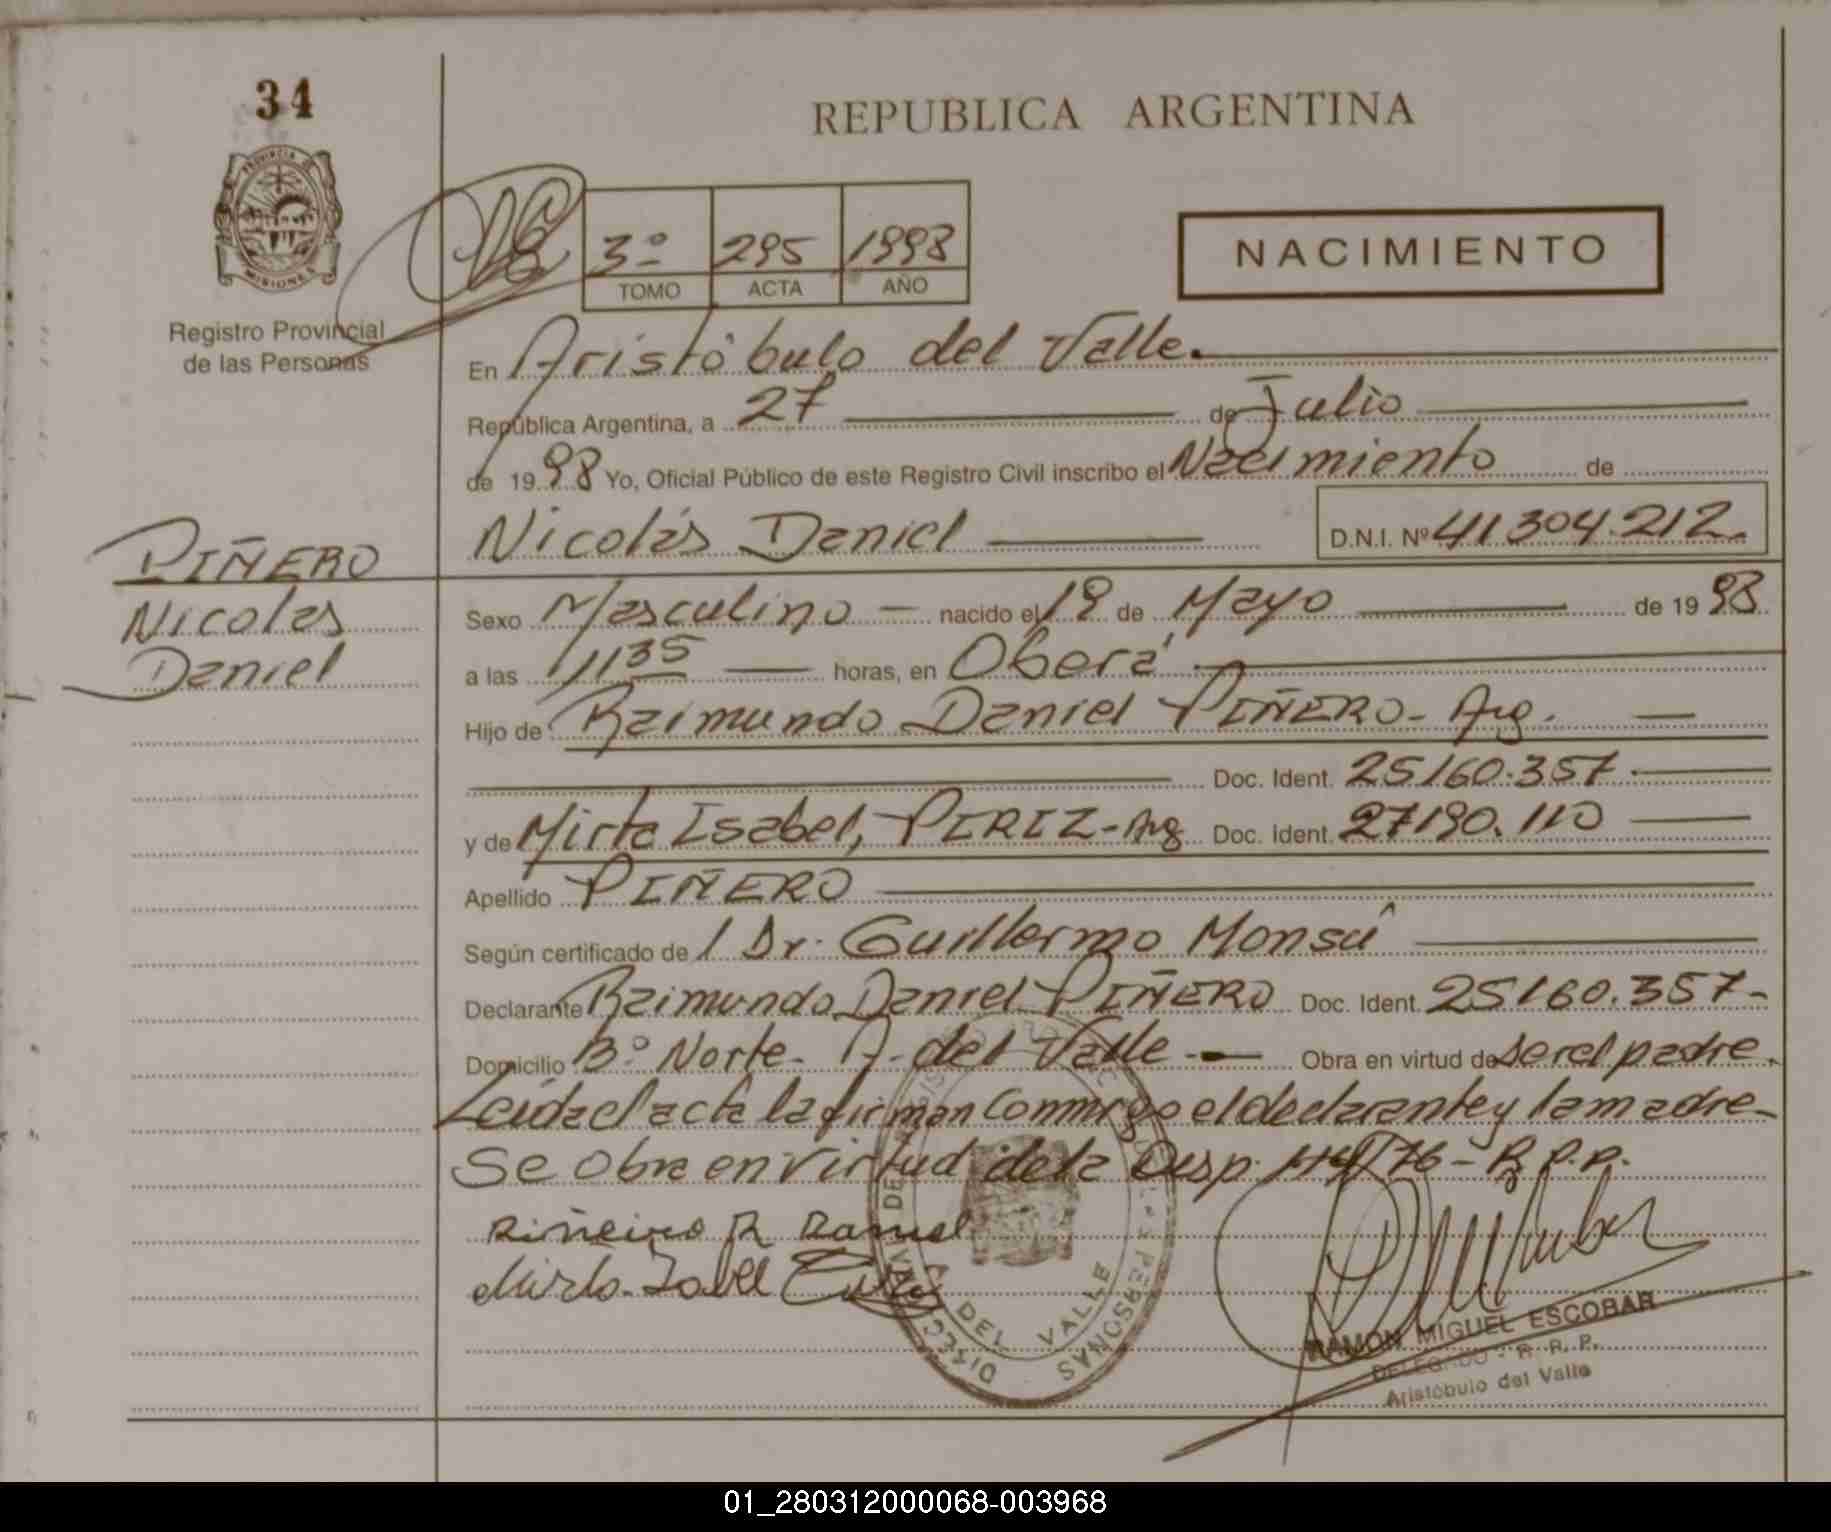 34
REPUBLICA ARGENTINA
PROVINCIA DE
MISIONES
Registro Provincial
de las Personas
3º 295 1998
TOMO ACTA AÑO
NACIMIENTO
En Aristóbulo del Valle.
República Argentina, a 27 de Julio
de 1998 Yo, Oficial Público de este Registro Civil inscribo el Nacimiento de
Nicolás Daniel D.N.I. Nº 41304.212.
PIÑERO
Nicolas
Daniel
Sexo Masculino nacido el 19 de Mayo de 1998
a las 11 35 horas, en Oberá
Hijo de Raimundo Daniel PIÑERO- Arg.
Doc. Ident. 25160.357
y de Mirta Isabel, PEREZ-Arg Doc. Ident. 27190.110
Apellido PIÑERO
Según certificado de l Dr. Guillermo Monsú
Declarante Raimundo Daniel PIÑERO Doc. Ident. 25160.357-
Domicilio B° Norte- A. del Valle - Obra en virtud de ser el padre.
Leída el acta la firman conmigo el declarante y la madre-
Se obra en virtud de la Disp. /76- R.P.P.
Piñeiro R Daniel
Mirta Isabel
DEL VALLE
PERSONAS
RAMON MIGUEL ESCOBAR
DELEGADO - R. P. P.
Aristóbulo del Valle
01_280312000068-003968